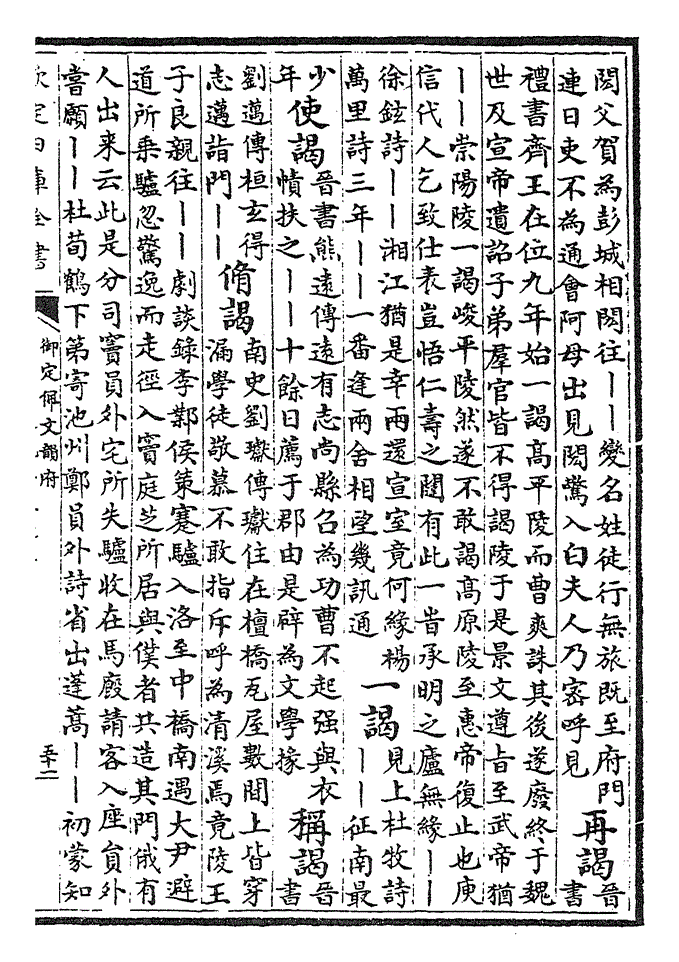 閎父賀為彭城相閎往丨丨變名姓徒行無旅既至府門
連日吏不為通會阿母出見閎驚入白夫人乃宻呼見
再謁
晉
書
禮書齊王在位九年始一謁髙平陵而曹爽誅其後遂廢終于魏
世及宣帝遺詔子弟羣官皆不得謁陵于是景文遵㫖至武帝猶
丨丨崇陽陵一謁峻平陵然遂不敢謁髙原陵至惠帝復止也庾
信代人乞致仕表豈悟仁壽之闥有此一告承明之廬無緣丨丨
徐鉉詩丨丨湘江猶是幸兩還宣室竟何緣楊
萬里詩三年丨丨一番逢兩舍相望幾訊通
一謁
見上杜牧詩
丨丨征南最
少
年
使謁
晉書熊遠傳遠有志尚縣召為功曹不起强與衣
幘扶之丨丨十餘日薦于郡由是辟為文學掾
稱謁
晉
書
劉邁傳桓玄得
志邁詣門丨丨
脩謁
南史劉瓛傳瓛住在檀橋瓦屋數間上皆穿
漏學徒敬慕不敢指斥呼為清溪焉竟陵王
子良親往丨丨劇談録李鄴侯策蹇驢入洛至中橋南遇大尹避
道所乗驢忽驚逸而走徑入竇庭芝所居與僕者共造其門俄有
人出来云此是分司竇員外宅所失驢收在馬廐請客入座貟外
喜願丨丨杜荀鶴下第寄池州鄭員外詩省出蓬蒿丨丨初蒙知
欽定四庫全書
御定佩文韻府
五十二